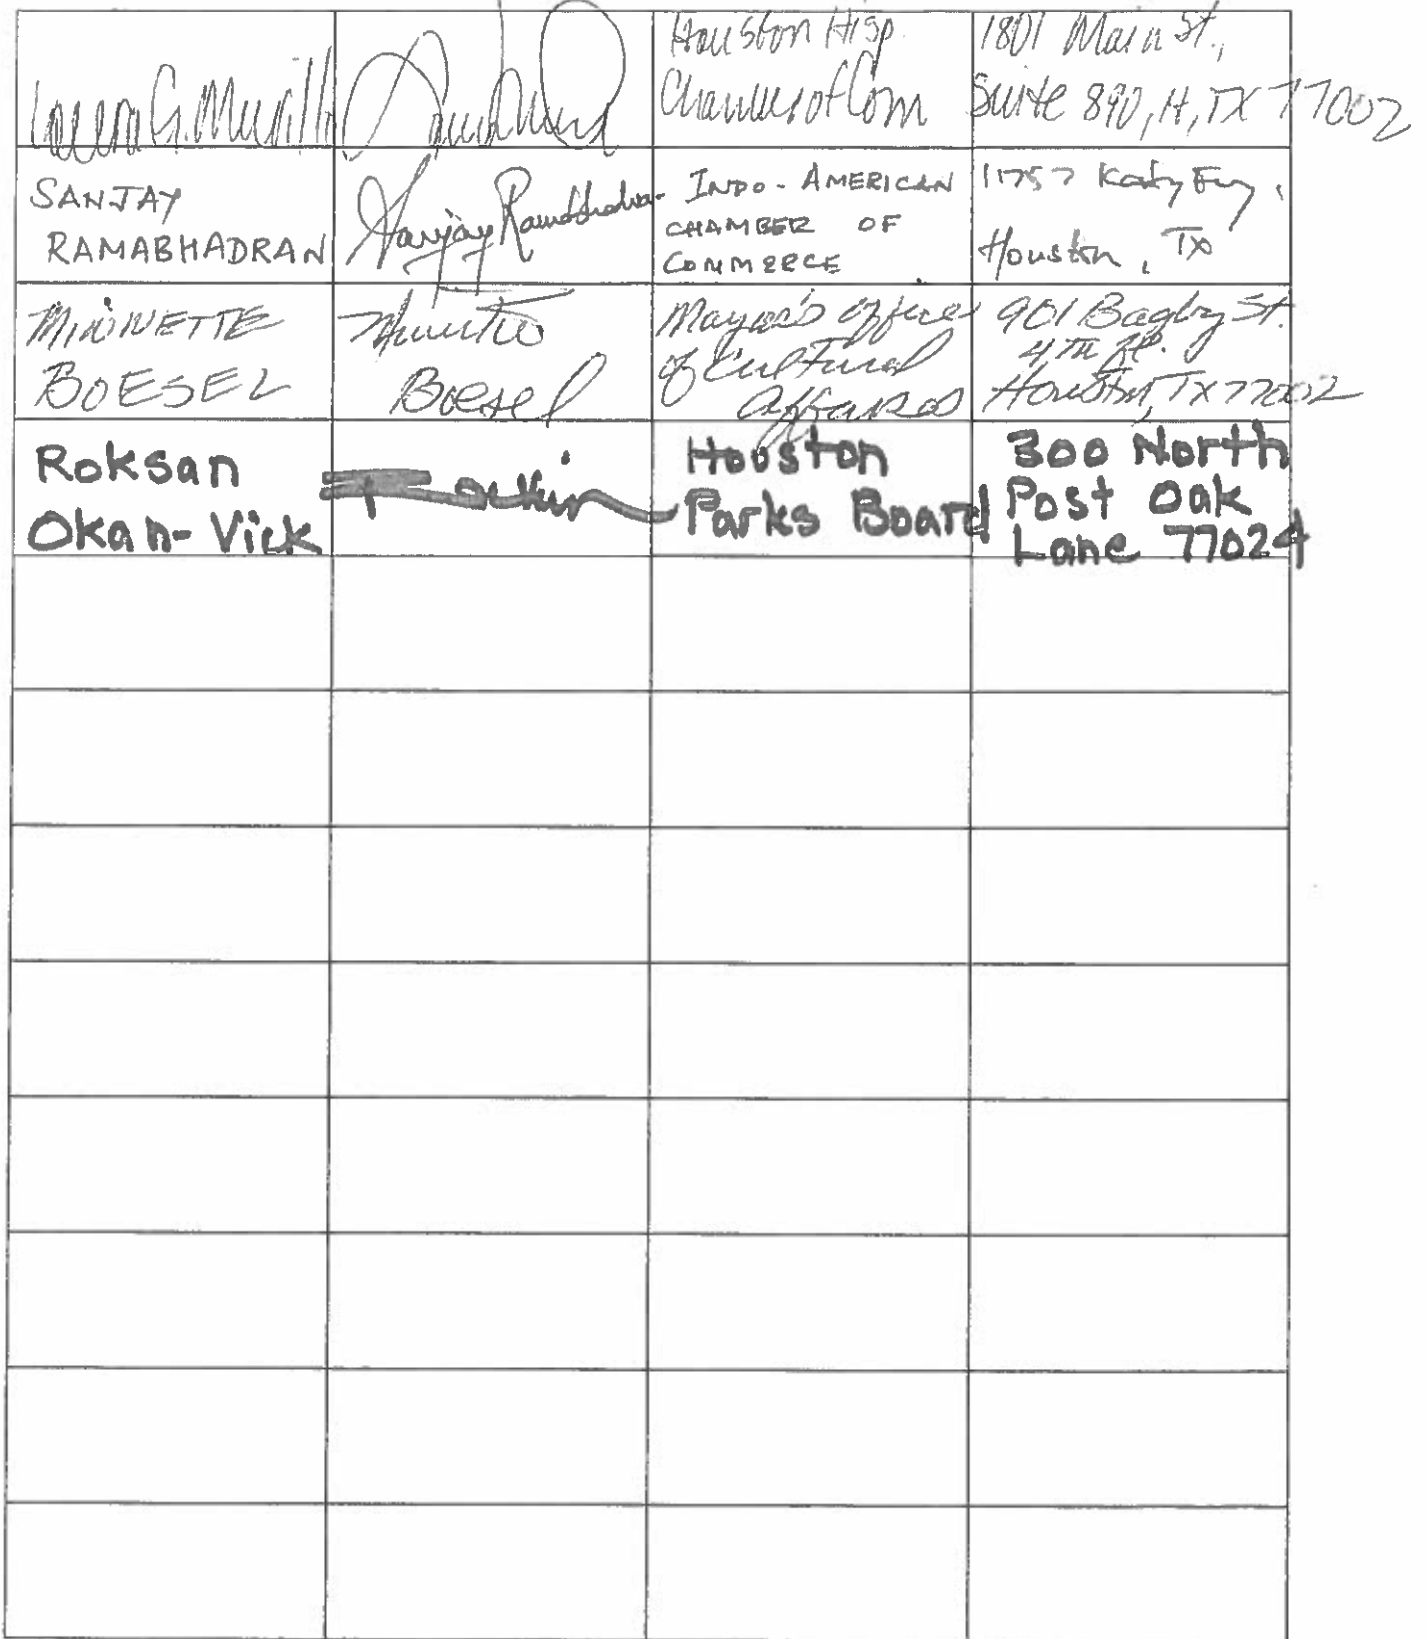 Laura G. Murillo
Houston Hisp.
Chamber of Com
1801 Main St.,
Suite 890, H, TX 77002
SANJAY
RAMABHADRAN
Sanjay Ramabhadran
INDO-AMERICAN
CHAMBER OF
COMMERCE
11757 Katy Fwy,
Houston, TX
MINNETTE
BOESEL
Minnette
Boesel
Mayor's Office
of Cultural
Affairs
901 Bagby St.
4TH Fl.
Houston, TX 77002
Roksan
Okan-Vick
Houston
Parks Board
300 North
Post Oak
Lane 77024